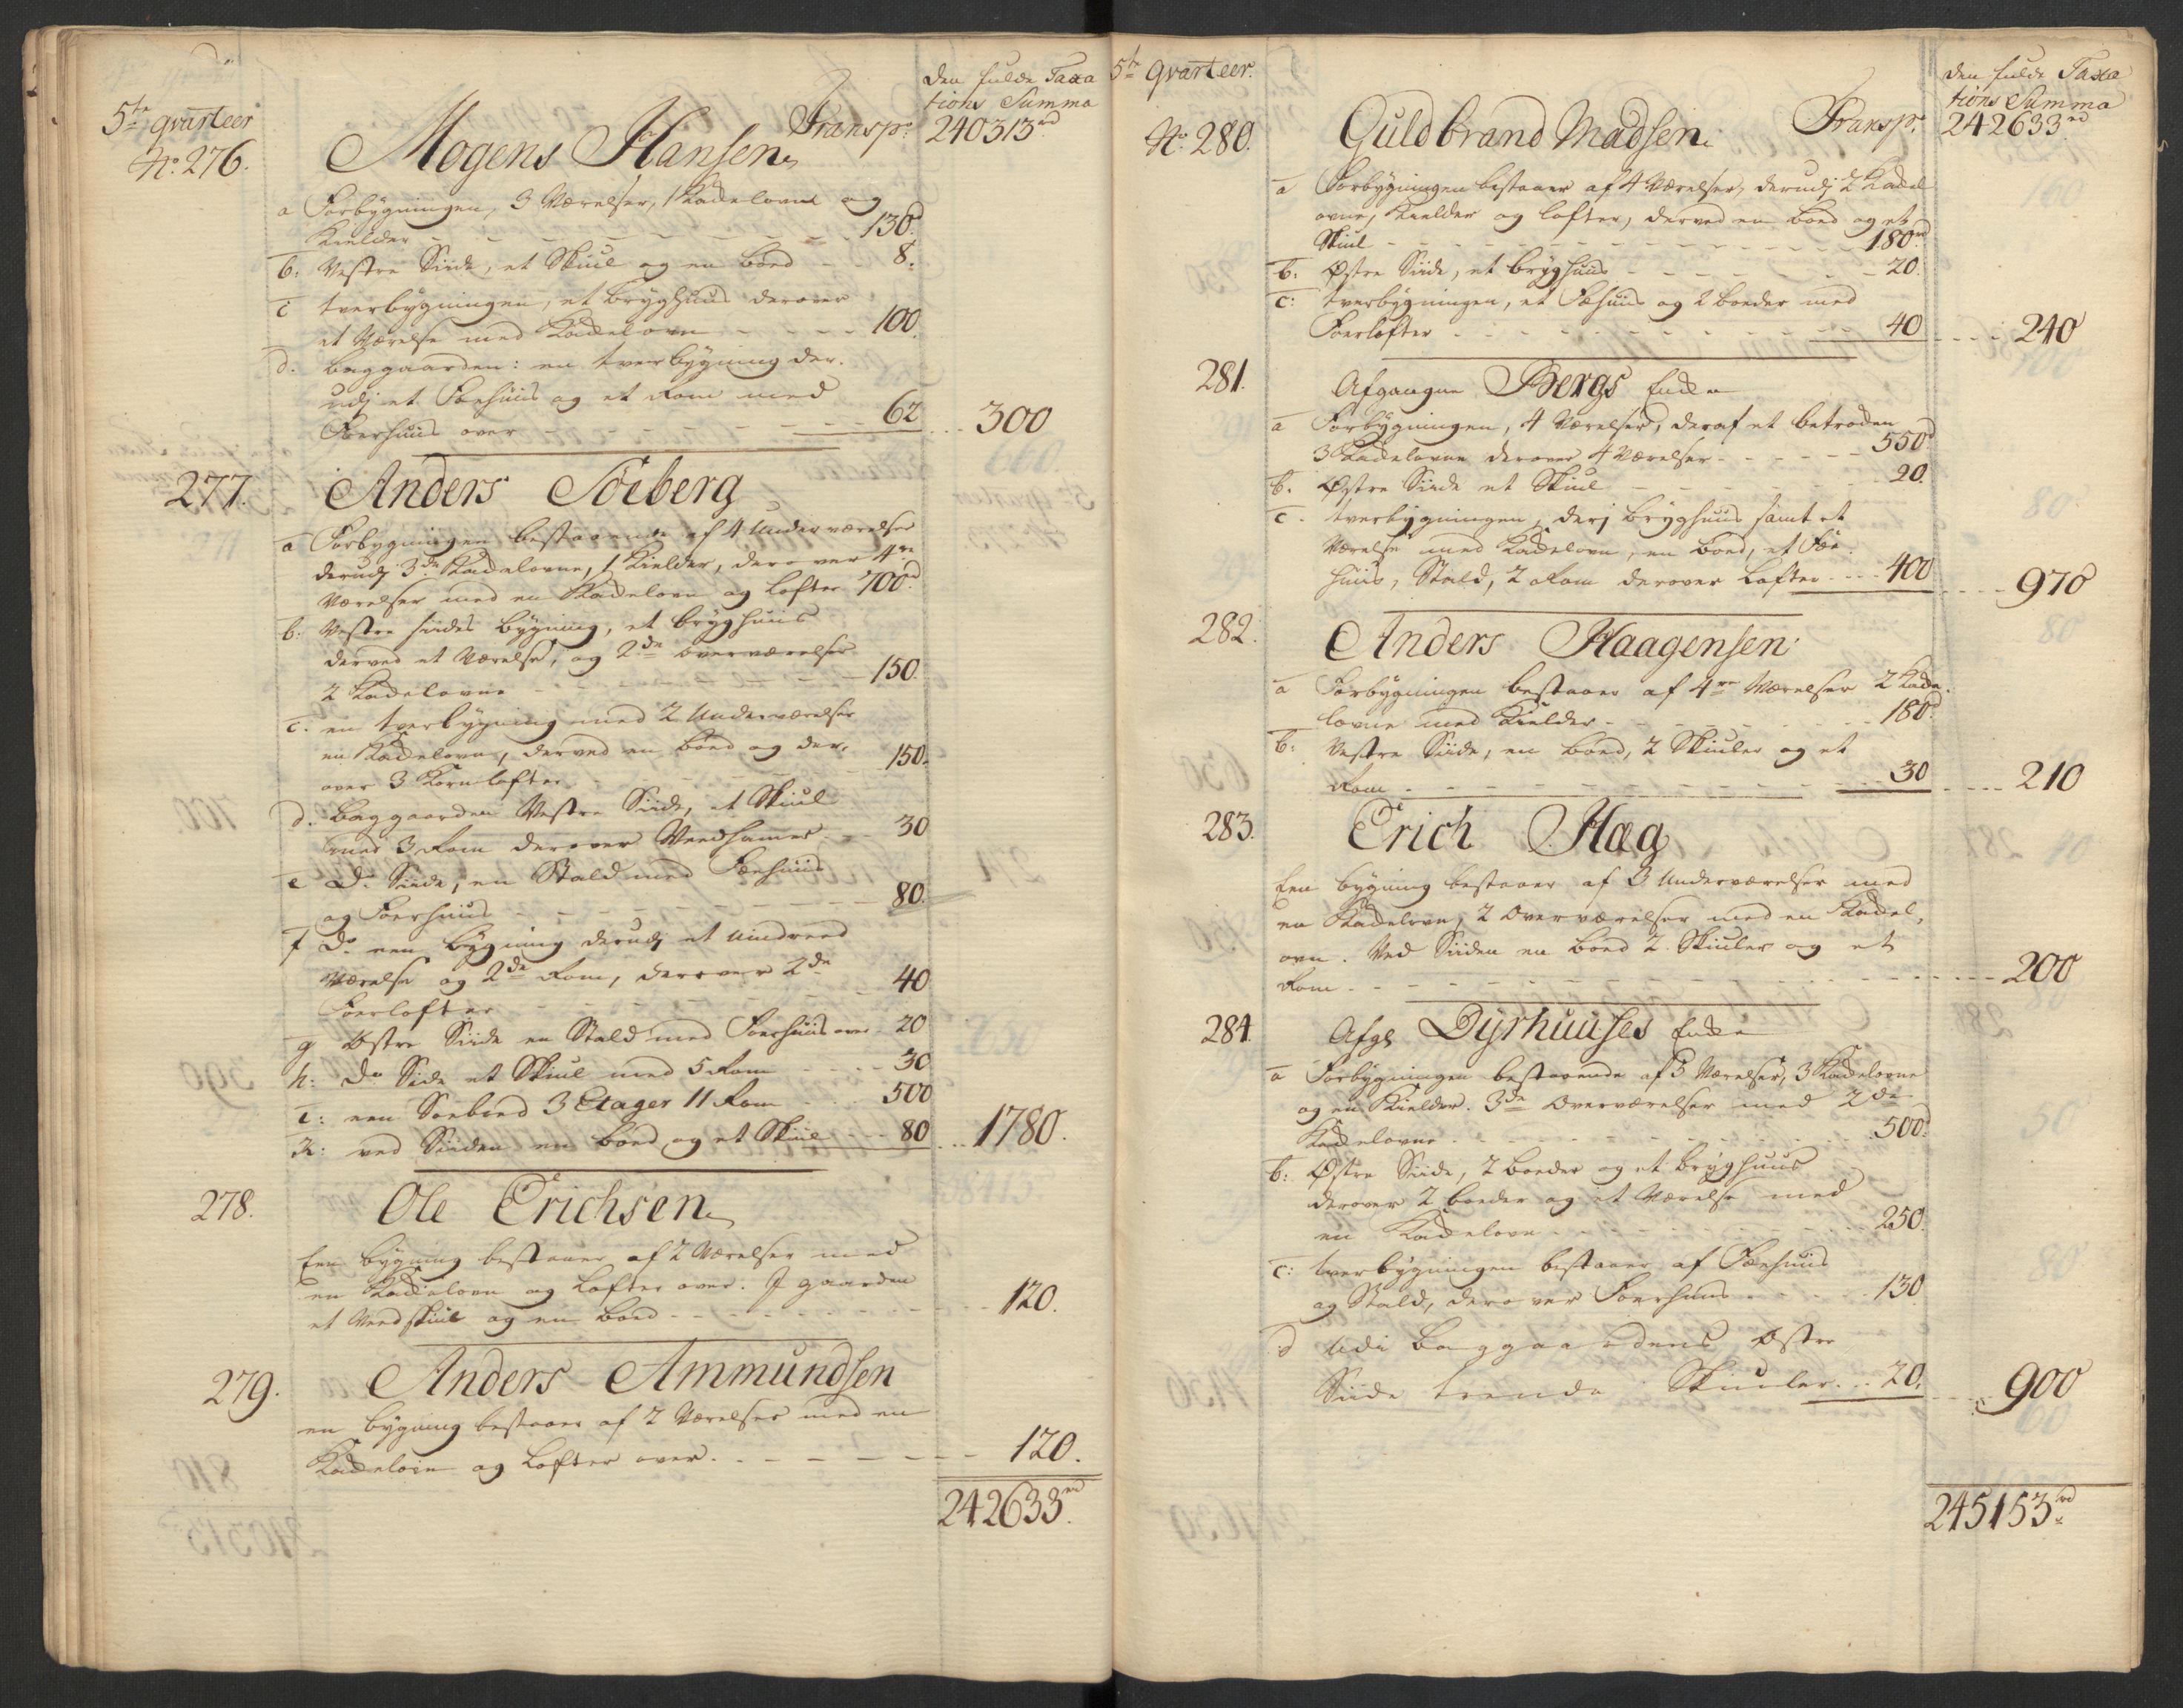 Den fulde Taxa
tions Summa
5te qvarteer
Transp: 240313rd
No: 276. Mogens Hansen
a Forbygningen, 3 Værelser, 1 Kadelovne og
Kielder - - - 130d
b: Vestre Siide, et Skuul og en boed - - 8.
c tverbygningen, et bryghuus derover
et Værelse med Kadelovn - - - - 100
d. baggaarden: en tverbygning der-
udj et Fæehuus og et Rom med
Foerhuus over - - - 62 ... 300
277. Anders Söeberg
a Forbygningen bestaaende af 4 Underværelser
derudj 3de Kadelovne, 1 Kielder, derover 4re
Værelser med en Kadelovn og lofter 700d
b: Vestre siides bygning, et bryghuus
derved et Værelse, og 2de overværelser
2 Kadelovne - - - 150.
c. en tverbygning med 2 Underværelser
en Kadelovn, derved en boed og der-
over 3 Kornlofter - - - 150.
d. Baggaarden Vestre Siide, et Skiul
med 3 Rom derover - - 30
e Do Siide, en Stald med Fæehuus
og Foerhuus - - - 80.
f Do een bygning derudj et
Værelse og 2de Rom, derover 2de
Foerlofter - - - 40
g Østre Siide en Stald med Foerhuus over - 20
h: Do Side et Skiul med 5 Rom - - - 30
i: een Söeboed 3 Etager 11 Rom - - 500
k: ved Siiden en boed og et Skiul - - 80 ... 1780.
278. Ole Erichsen
Een bygning bestaaer af 2 Værelser med
en Kadelovn og Lofter over. J gaarden
et Vedskiul og en boed - - - 120.
279. Anders Ammundsen
en bygning bestaaer af 2 Værelser med en
Kadelovn og Lofter over. - - - 120.
242633rd
5te qvarteer.
Den fulde Taxa
tions Summa
No: 280. Guldbrand Madsen Transp: 242633rd
a Forbygningen bestaaer af 4 Værelser, derudj 2 Kadel
ovne, Kielder og lofter, derved en boed og et
Skiul - - - 180rd
b: Østre Siide, et bryghuus - - - 20.
c: tverbygningen, et Fæhuus og 2 boeder med
Foerlofter - - - 40 ... 240
281. Afgangne Bergs Enke
a Forbygningen, 4 Værelser, deraf et betrocken
3 Kadelovne derover 4 Værelser - - - 550d
b. Østre Siide et Skiul - - - 20.
c. tverbygningen, derj bryghuus samt et
Værelse med Kadelovn, en boed, et Fæe-
huus, Stald, 2 Rom derover Lofter - - - 400 ... 970
282. Anders Haagensen
a Forbygningen bestaaer af 4re Værelser 2 Kade-
lovne med Kielder - - - 180d
b: Vestre Siide, en boed, 2 Skiuler og et
Rom - - - 30 ... 210
283. Erich Hag
Een bygning bestaaer af 3 Underværelser med
en Kadelovn, 2 Overværelser med en Kadel-
ovn. Ved Siiden en boed 2 Skiuler og et
Rom - - - 200
284. Afg: Dyrhuuses Enke
a Forbygningen bestaaende af 5 Værelser, 3 Kadelovne
og en Kielder. 3de Overværelser med 2de
Kadelovne - - - 500d
b: Østre Siide, 2 boeder og et bryghuus
derover 2 boeder og et Værelse med
en Kadelovn - - - 250.
c: tverbygningen bestaaer af Fæehuus
og Stald, derover Foerhuus - - - 130
d Udi baggaardens Østre
Siide trende Skiuler - - 20. ... 900
245153rd